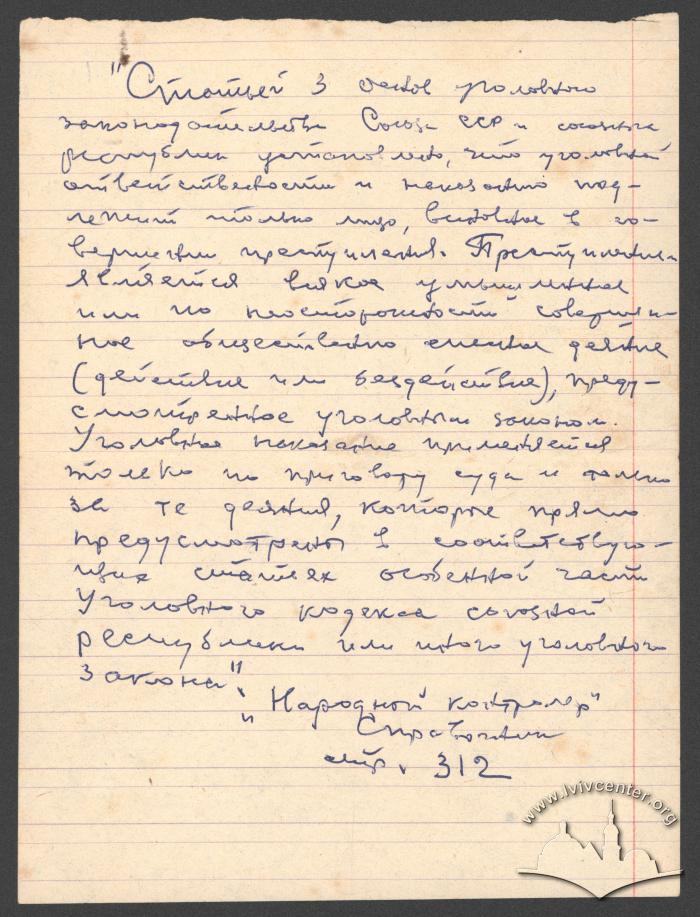 "Статьей 3 Основ уголовного
законодательства Союза ССР и союзных
республик установлено, что уголовной
ответственности и наказанию под-
лежит только лицо, виновное в со-
вершении преступления. Преступлением
является всякое умышленное
или по неосторожности совершен-
ное общественно опасное деяние
(действие или бездействие), преду-
смотренное уголовным законом.
Уголовное наказание применяется
только по приговору суда и только
за те деяния, которые прямо
предусмотрены в соответствую-
щих статьях особенной части
Уголовного кодекса союзной
республики или иного уголовного
закона".
"Народный контролер"
Справочник
стр. 312
www.lvivcenter.org